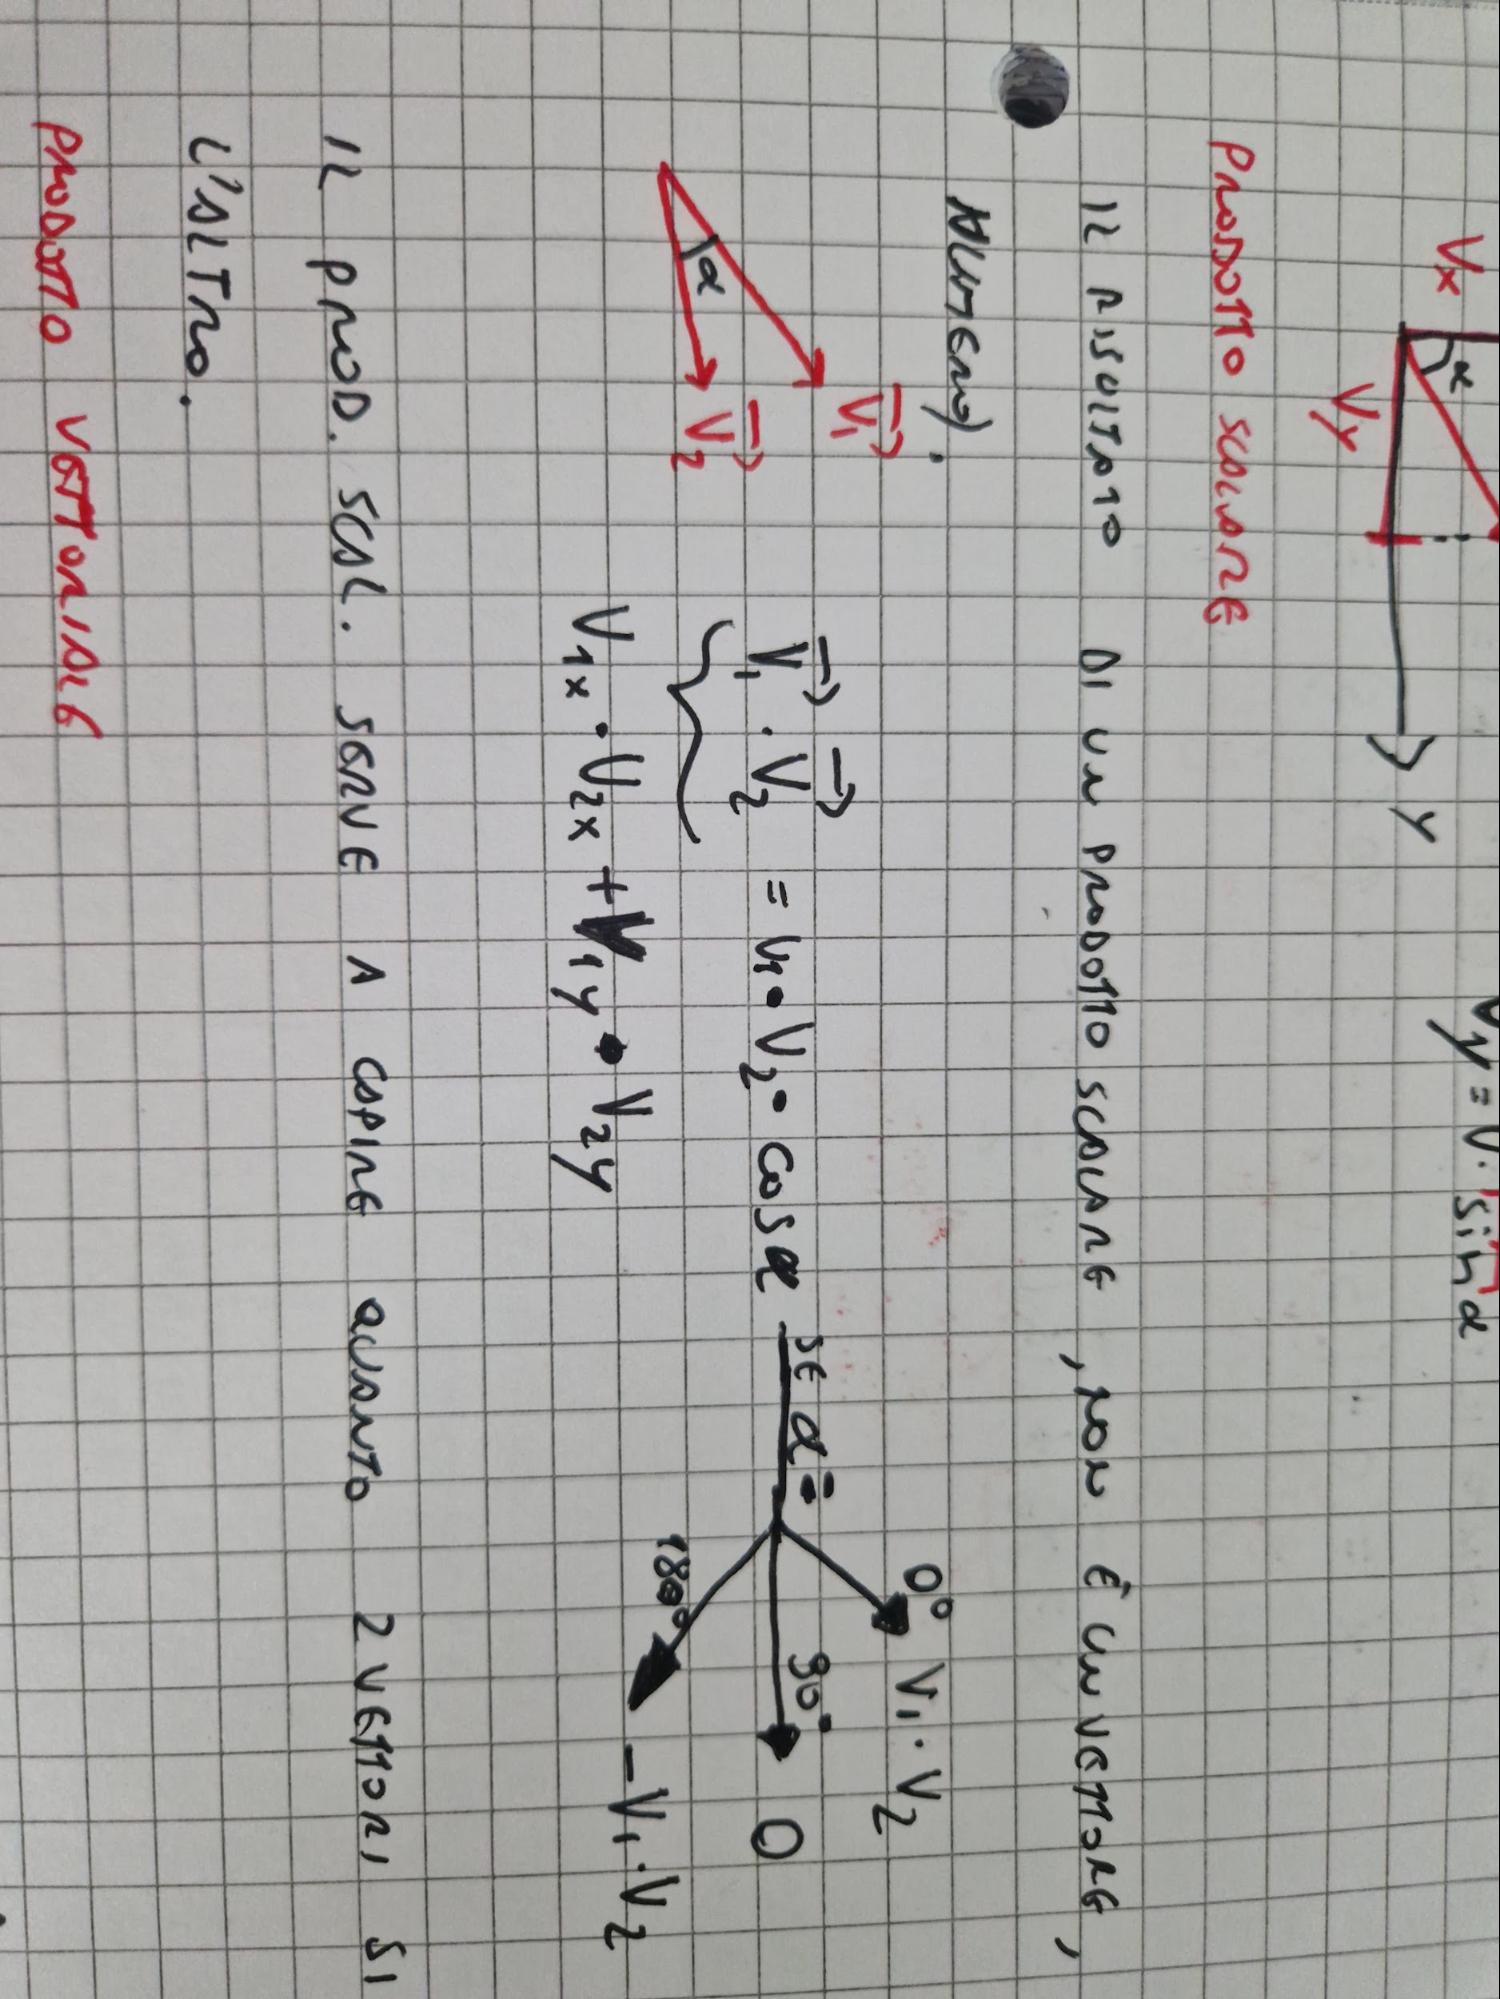 Vx
α
Vy
y
Vy = V · sin α
PRODOTTO SCALARE
IL RISULTATO DI UN PRODOTTO SCALARE, NON È UN VETTORE,
NUMERO).
V₁
α
V₂
V₁ · V₂ = V₁ · V₂ · cos α
SE α =
0° V₁ · V₂
90° 0
180° -V₁ · V₂
V₁x · V₂x + V₁y · V₂y
IL PROD. SCAL. SERVE A CAPIRE QUANTO 2 VETTORI SI
L'ALTRO.
PRODOTTO VETTORIALE